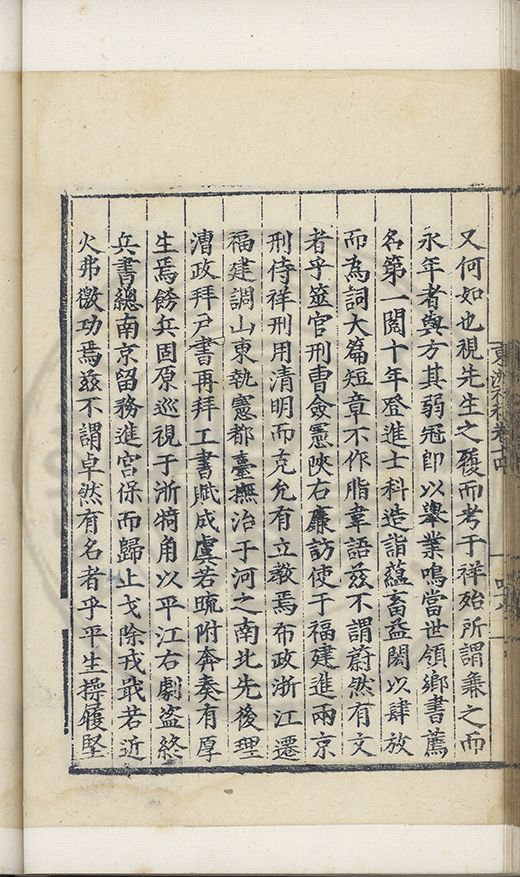 又何如也視先生之履而考于祥殆所謂兼之而
永年者與方其弱冠即以舉業鳴當世領鄉書薦
名第一閱十年登進士科造詣蘊畜益閎以肆放
而為詞大篇短章不作脂韋語茲不謂蔚然有文
者乎筮官刑曹僉憲陝右廉訪使于福建進兩京
刑侍祥刑用清明而克允有立教焉布政浙江遷
福建調山東執憲都臺撫治于河之南北先後理
漕政拜戶書再拜工書賦成虞若疏附奔奏有厚
生焉餝兵固原巡視于浙犄角以平江右劇盜終
兵書總南京留務進宮保而歸止戈除戎戢若近
火弗徼功焉茲不謂卓然有名者乎平生操履堅